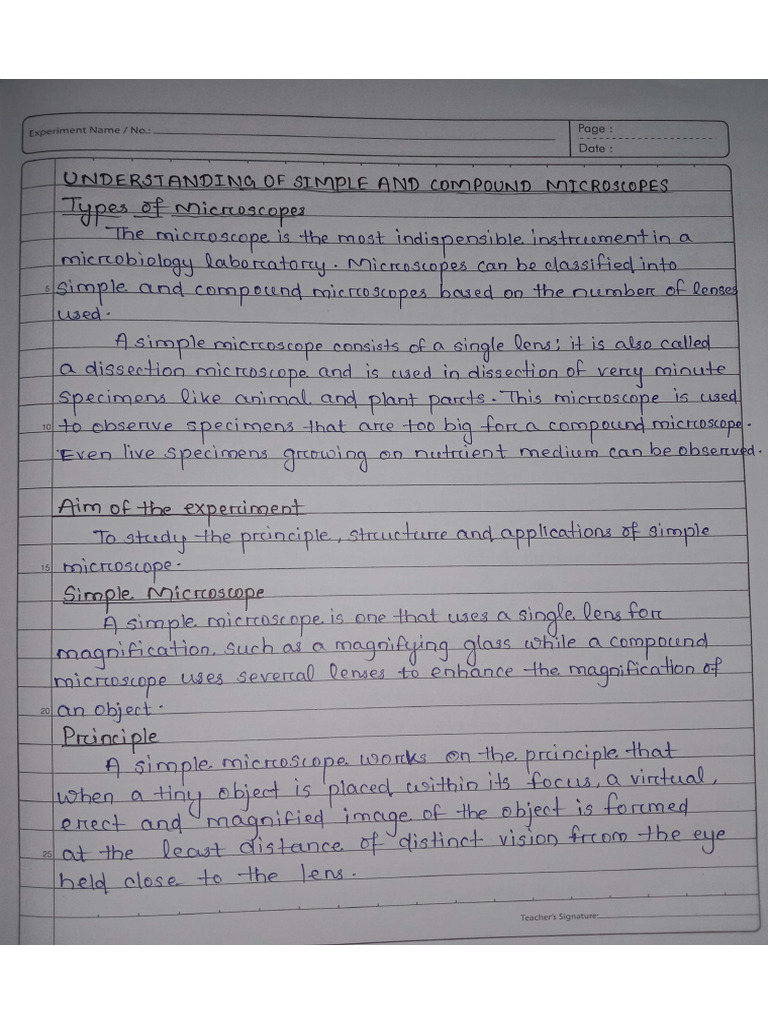 Experiment Name / No.:
Page :
Date :
UNDERSTANDING OF SIMPLE AND COMPOUND MICROSCOPES
Types of Microscopes
The microscope is the most indispensible instrument in a
microbiology laboratory. Microscopes can be classified into
5 simple and compound microscopes based on the number of lenses
used.
A simple microscope consists of a single lens; it is also called
a dissection microscope and is used in dissection of very minute
specimens like animal and plant parts. This microscope is used
10 to observe specimens that are too big for a compound microscope.
Even live specimens growing on nutrient medium can be observed.
Aim of the experiment
To study the principle, structure and applications of simple
15 microscope.
Simple Microscope
A simple microscope is one that uses a single lens for
magnification, such as a magnifying glass while a compound
microscope uses several lenses to enhance the magnification of
20 an object.
Principle
A simple microscope works on the principle that
when a tiny object is placed within its focus, a virtual,
erect and magnified image of the object is formed
25 at the least distance of distinct vision from the eye
held close to the lens.
Teacher's Signature: